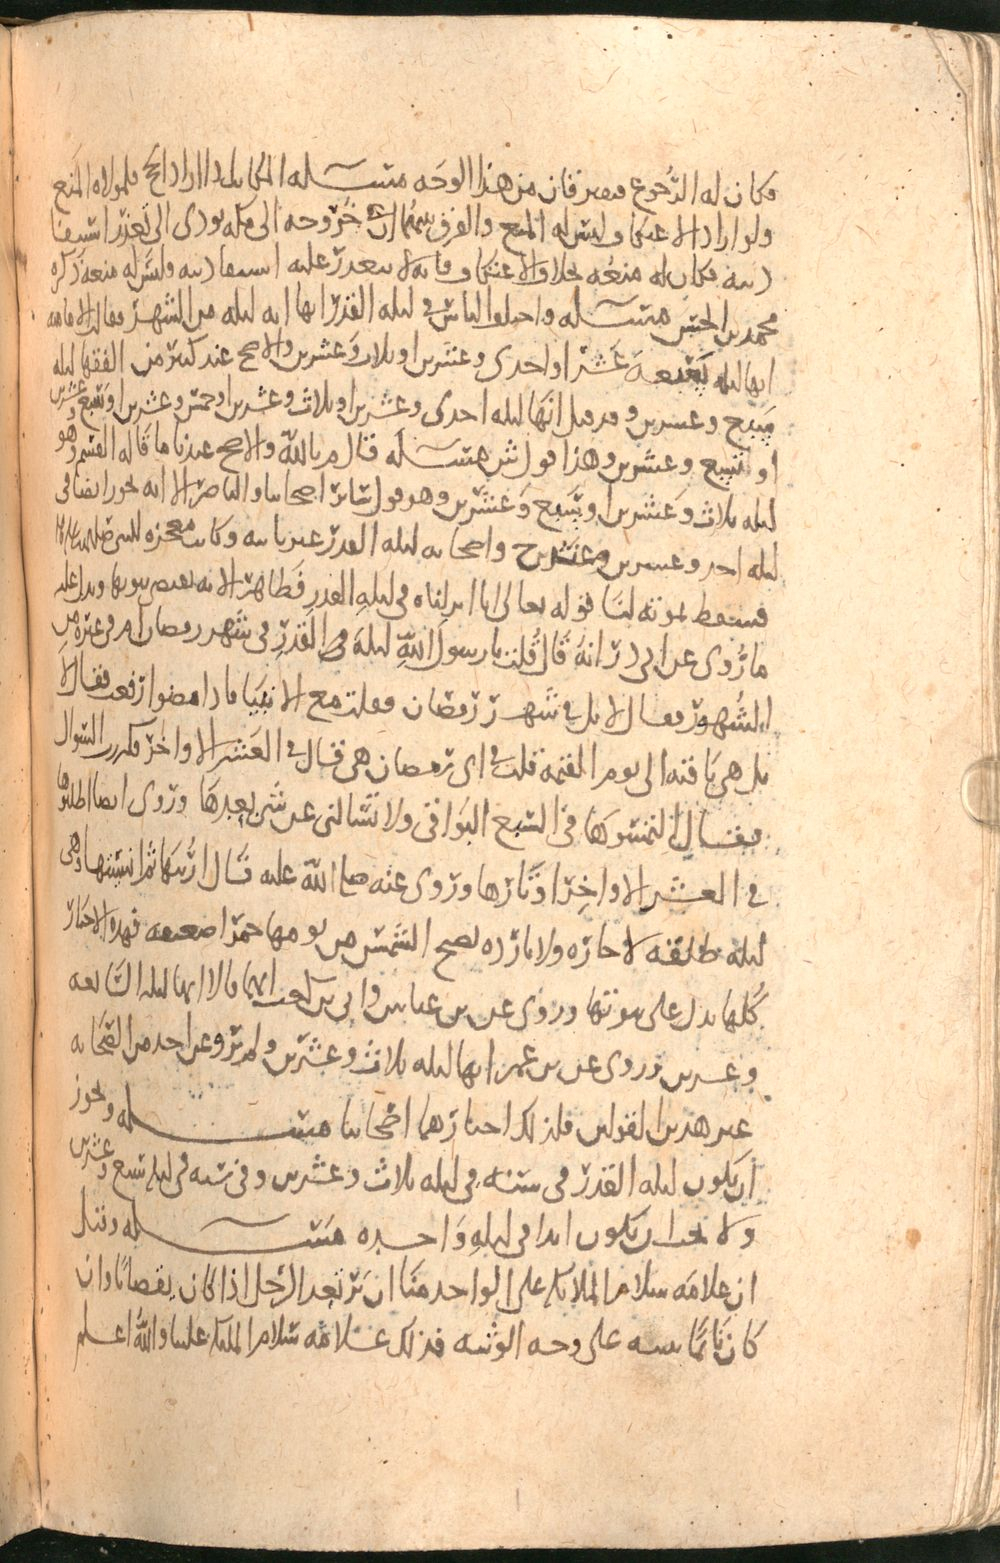 فكان له الرجوع فيفترقان من هذا الوجه مسئلة المكاتب اذا اراد الحج فلمولاه المنع
ولو اراد الاعتكاف وليس له المنع والفرق بينهما ان خروجه الى مكه يودي الى تعذر استيفا
دينه فكان له منعه بخلاف الاعتكاف فانه لا يتعذر عليه استيفا دينه فليس له منعه ذكره
محمد بن الحسن مسئلة واختلف الناس في ليله القدر ايها ايه ليله من الشهر فقال الاماميه
انها ليله تسعة عشر او احدى وعشرين او ثلاث وعشرين والاصح عند كثير من الفقها ليله
سبع وعشرين وقد قيل انها ليله احدى وعشرين او ثلاث وعشرين او خمس وعشرين او سبع وعشرين
او تسع وعشرين وهذا قول ش مسئلة قال م بالله والاصح عندنا ما قاله القسم وهو
ليله ثلاث وعشرين او سبع وعشرين وهو قول سائر اصحابنا والناصر الا انه يجوز ايضا في
ليله احد وعشرين وعند ح واصحابه ليله القدر غير ثابته وكانت معجزه للنبي صلى الله عليه
فسقط بموته لنا قوله تعالى انا انزلناه في ليلة القدر فظاهر الايه يقتضي ثبوتها ويدل عليه
ما روي عن ابي ذر انه قال قلت يارسول الله ليلة القدر في شهر رمضان ام في غيره من
الشهور فقال لا بل في شهر رمضان فقلت مع الانبيا ما داموا فاذا مضوا رفعت فقال لا
بل هي باقيه الى يوم القيمه قلت في اي رمضان هي قال في العشر الاواخر فكررت السوال
فقال التمسوها في السبع البواقي ولا تسالني عن شي بعدها وروي ايضا اطلبوها
في العشر الاواخر اوتارها وروي عنه صلى الله عليه قال اريتها ثم انسيتها وهي
ليلة طلقه لا حاره ولا بارده تصبح الشمس من يومها حمرا ضعيفه فهذه الاخبار
كلها تدل على ثبوتها وروي عن بن عباس وابي بن كعب انهما قالا انها ليله السابعه
وعشرين وروي عن بن عمر انها ليله ثلاث وعشرين ولم يرو عن احد من الصحابه
غير هذين القولين فلذلك اختارهما اصحابنا مسئلة ويجوز
ان يكون ليله القدر في سنة في ليله ثلاث وعشرين وفي سنه في ليله سبع وعشرين
ولا يجب ان يكون ابدا في ليلة واحده مسئلة وقيل
ان علامه سلام الملائكة على الواحد منا ان يرتعد الرجل اذا كان يقضانا وان
كان نائما تنبه على وجه الوثبه فذلك علامة سلام الملئكه عليه والله اعلم